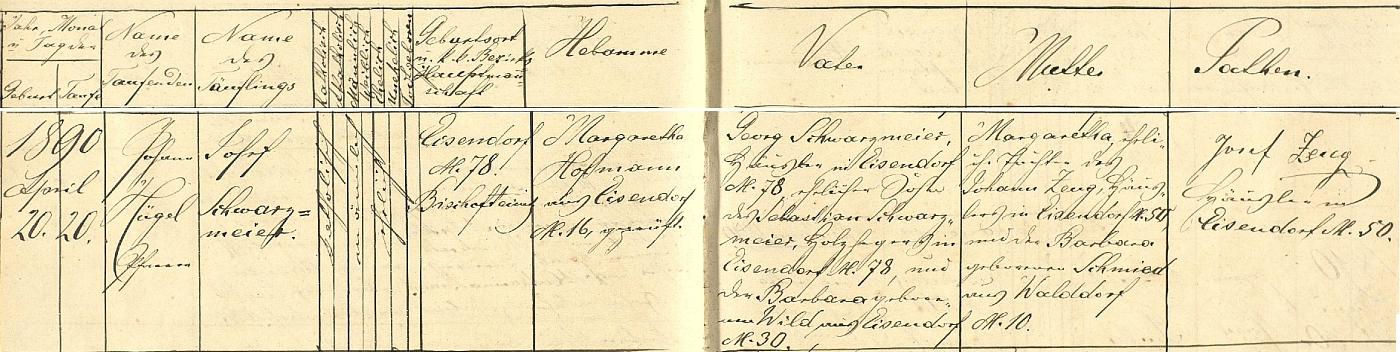 Jahr, Monat
u. Tag der
Geburt Taufe
Name
des
Taufenden
Name
des
Täuflings
Katholisch
Akatholisch
Männlich
Weiblich
Ehelich
Unehelich
Geburtsort
u. k. k. Bezirks
Hauptman
schaft
Hebamme
Vater
Mutter
Pathen.
1890
April
20. 20.
Johann
Hügel
Pfarrer
Josef
Schwarz=
meier.
katholisch
männlich
ehelich
Eisendorf
N. 78.
Bischofteinitz
Margaretha
Hofmann
aus Eisendorf
N. 16, geprüft.
Georg Schwarzmeier,
Häusler in Eisendorf
N. 78, ehelicher Sohn
des Sebastian Schwarz-
meier, Holzheger in
Eisendorf N. 78, und
der Barbara gebore-
nen Wild aus Eisendorf
N. 30.
Margaretha, eheli-
che Tochter des
Johann Zeug, Häus-
lers in Eisendorf N. 50,
und der Barbara
geborenen Schmied
aus Walddorf
N. 10.
Josef Zeug
Häusler in
Eisendorf N. 50.